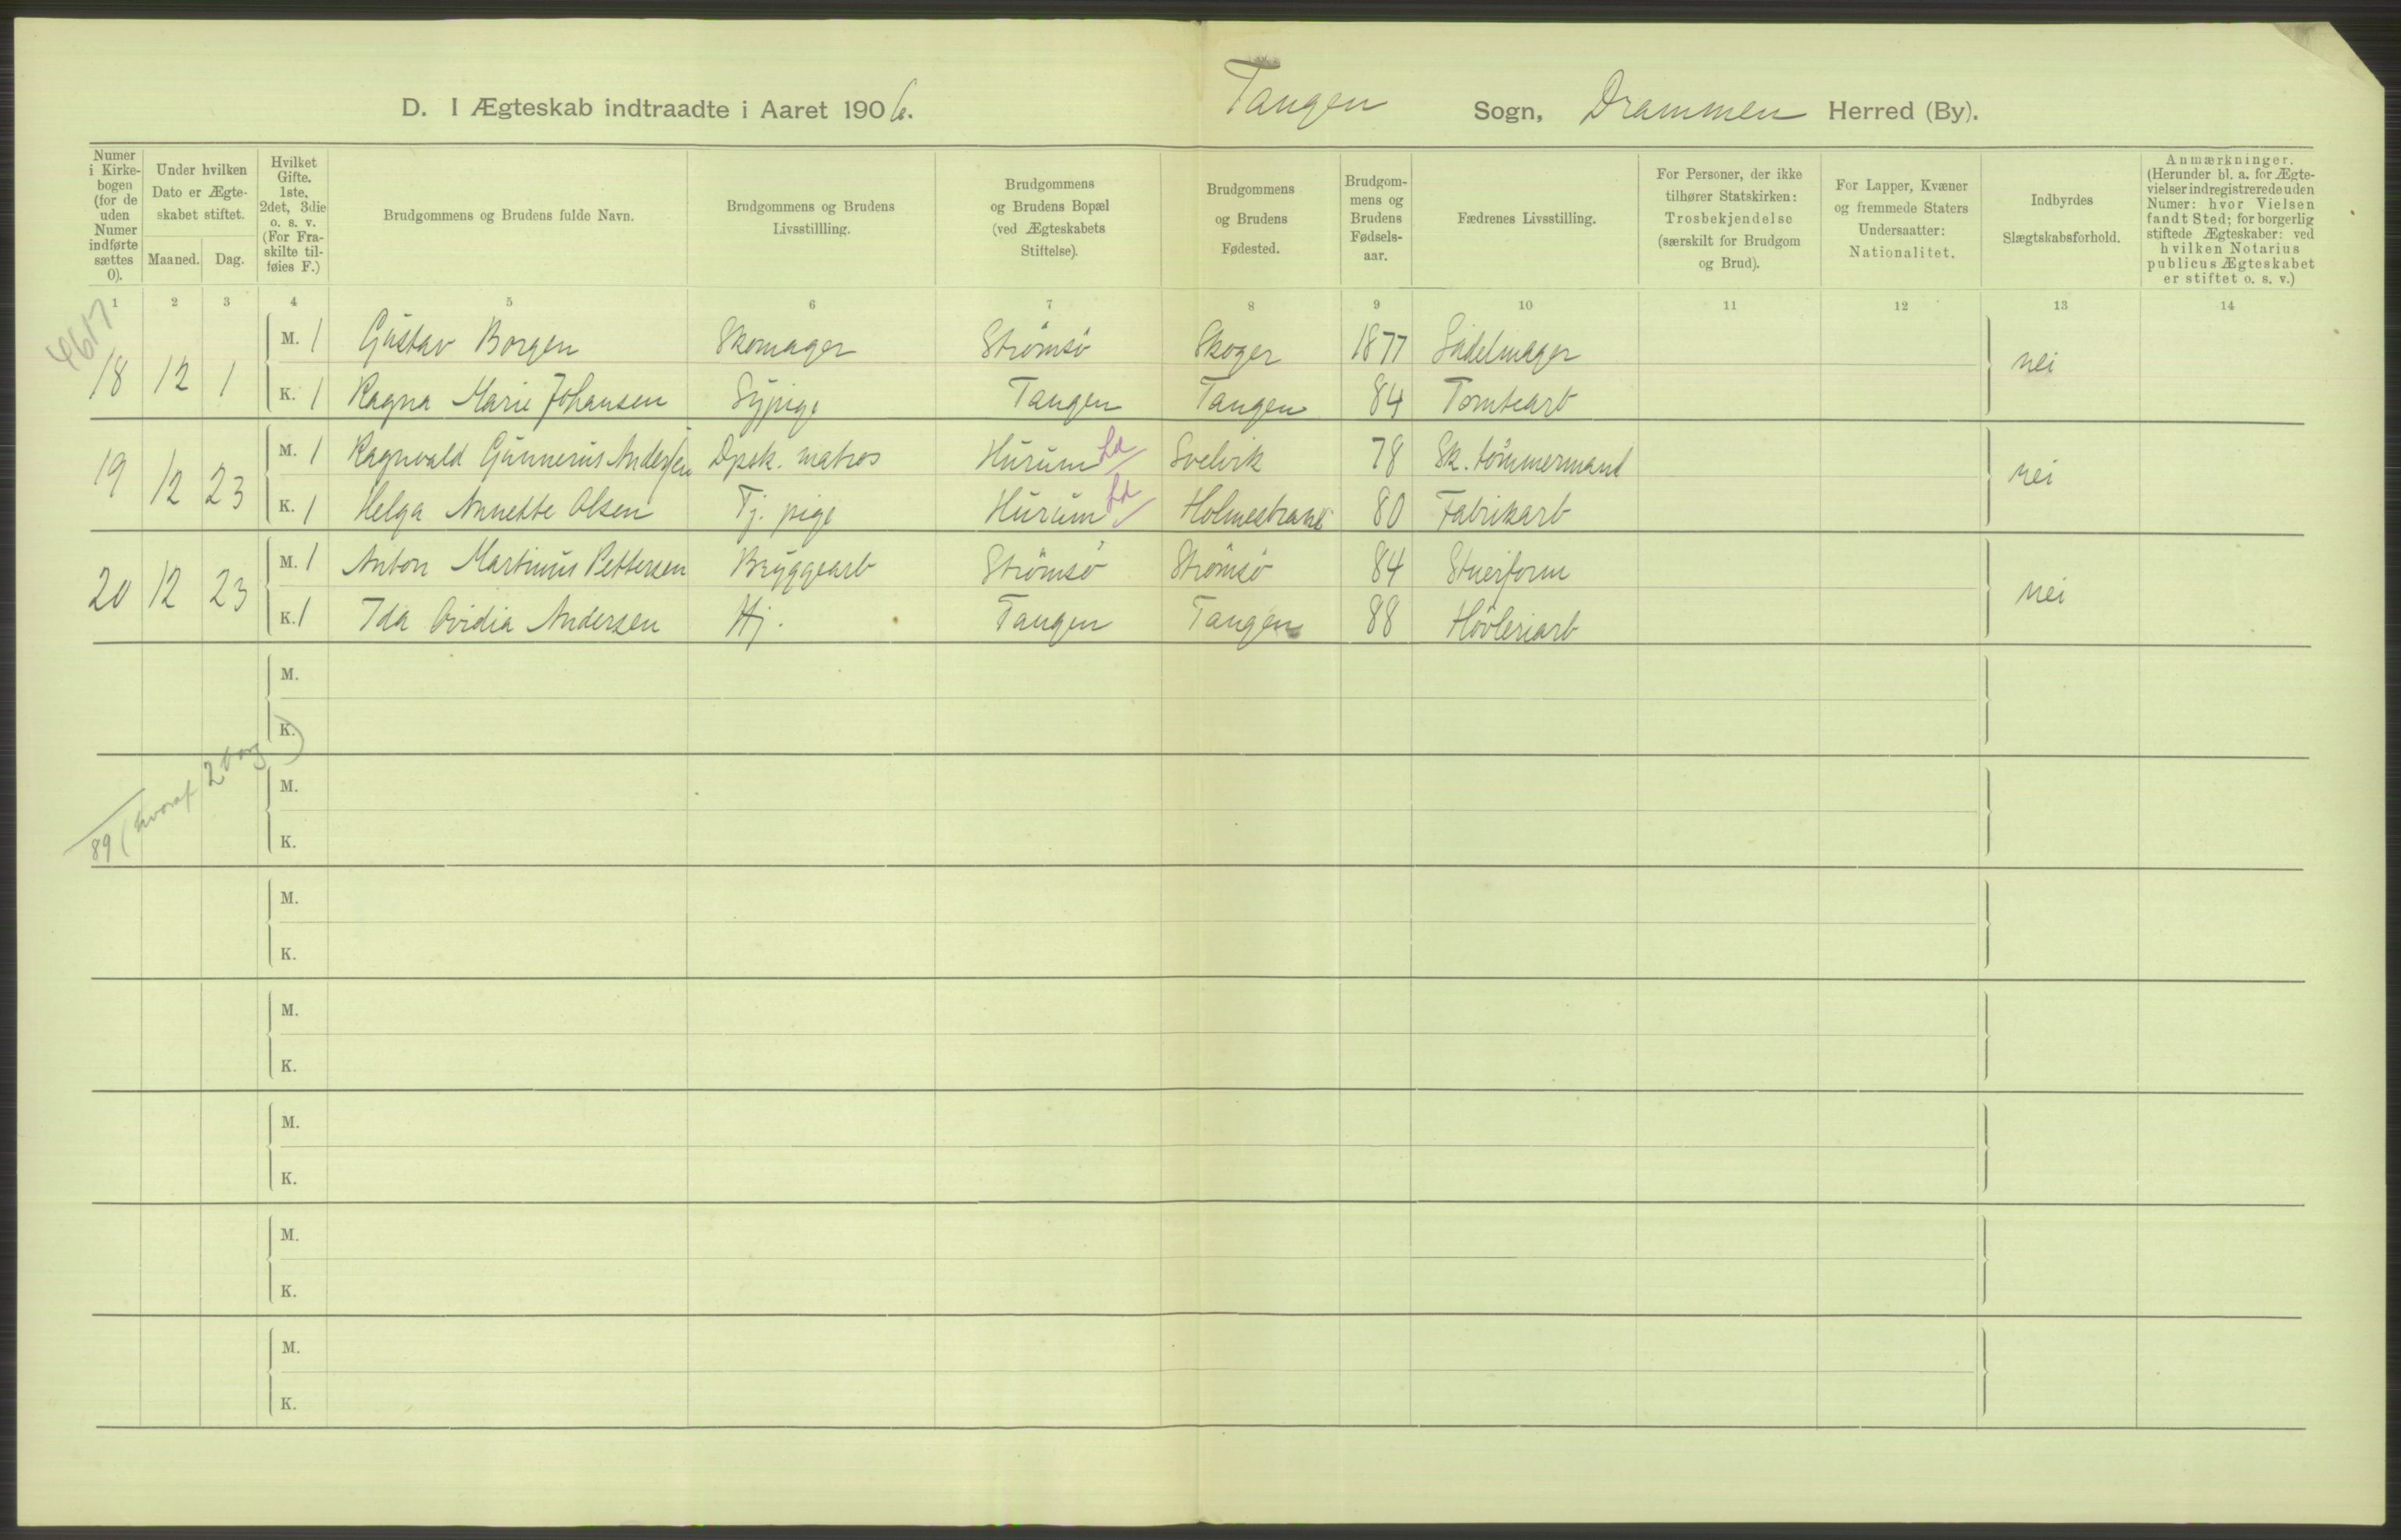 D. I Ægteskab indtraadte i Aaret 1906. Tangen Sogn, Drammen Herred (By).
Numer i Kirkebogen (for de uden Numer indførte sættes 0).
Under hvilken Dato er Ægteskabet stiftet.
Maaned. Dag.
Hvilket Gifte. 1ste, 2det, 3die o. s. v. (For Fraskilte tilføies F.)
Brudgommens og Brudens fulde Navn.
Brudgommens og Brudens Livsstillling.
Brudgommens og Brudens Bopæl (ved Ægteskabets Stiftelse).
Brudgommens og Brudens Fødested.
Brudgommens og Brudens Fødselsaar.
Fædrenes Livsstilling.
For Personer, der ikke tilhører Statskirken: Trosbekjendelse (særskilt for Brudgom og Brud).
For Lapper, Kvæner og fremmede Staters Undersaatter: Nationalitet.
Indbyrdes Slægtskabsforhold.
Anmærkninger. (Herunder bl. a. for Ægtevielser indregistrerede uden Numer: hvor Vielsen fandt Sted; for borgerlig stiftede Ægteskaber: ved hvilken Notarius publicus Ægteskabet er stiftet o. s. v.)
1 2 3 4 5 6 7 8 9 10 11 12 13 14
4617
M. 1 Gustav Borgen Skomager Strømsø Skoger 1877 Sadelmager
18 12 1 nei
K. 1 Ragna Marie Johansen Sypige Tangen Tangen 84 Tomtearb
M. 1 Ragnvald Gunnerus Andersen Dpsk. matros Hurum Ld Svelvik 78 Sk. tømmermand
19 12 23 nei
K. 1 Helga Annette Olsen Tj. pige Hurum Ld Holmestrand 80 Fabrikarb
M. 1 Anton Martinius Pettersen Bryggearb Strømsø Strømsø 84 Stuerform
20 12 23 nei
K. 1 Ida Ovidia Andersen Hj. Tangen Tangen 88 Høvleriarb
M.
K.
89 (hvoraf 2 borg)
M.
K.
M.
K.
M.
K.
M.
K.
M.
K.
M.
K.